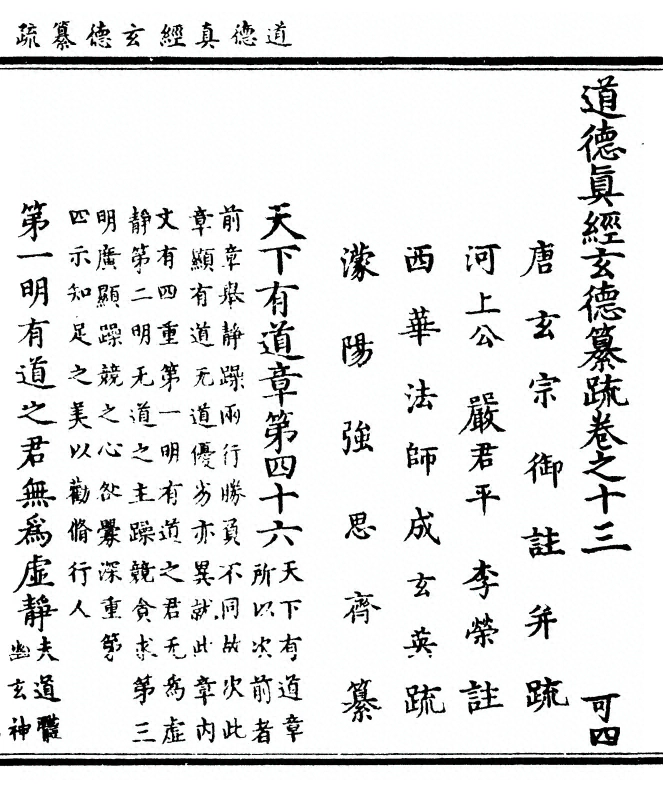 道德真經玄德纂疏
道德眞經玄德纂疏卷之十三 可四
唐玄宗御註并疏
河上公 嚴君平 李榮註
西華法師成玄英疏
濛陽強思齊纂
天下有道章第四十六 天下有道章
所以次前者
前章舉靜躁兩行勝負不同故次此
章顯有道无道優劣亦異就此章内
文有四重第一明有道之君无爲虛
靜第二明无道之主躁競貪求第三
明廣顯躁競之心欲釁深重第
四示知足之美以勸脩行人
第一明有道之君無爲虛靜 夫道體
幽玄神